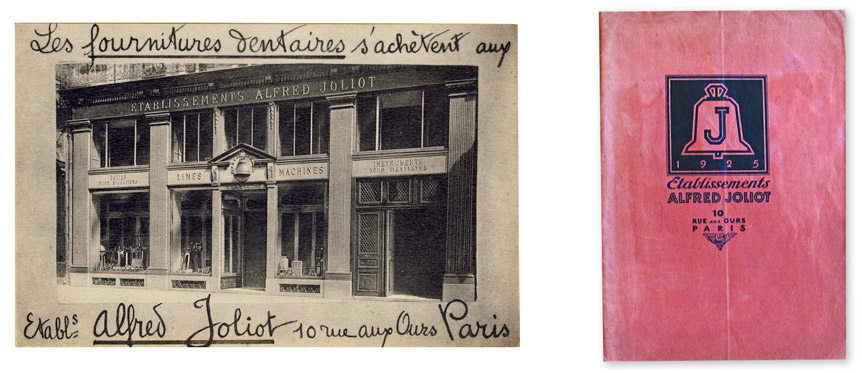 Les fournitures dentaires s'achètent aux
ETABLISSEMENTS ALFRED JOLIOT
OUTILS
POUR BIJOUTIERS
LIMES
MACHINES
INSTRUMENTS
POUR DENTISTES
Etabls Alfred Joliot 10 rue aux Ours Paris
J
1925
Etablissements
ALFRED JOLIOT
10
RUE AUX OURS
PARIS